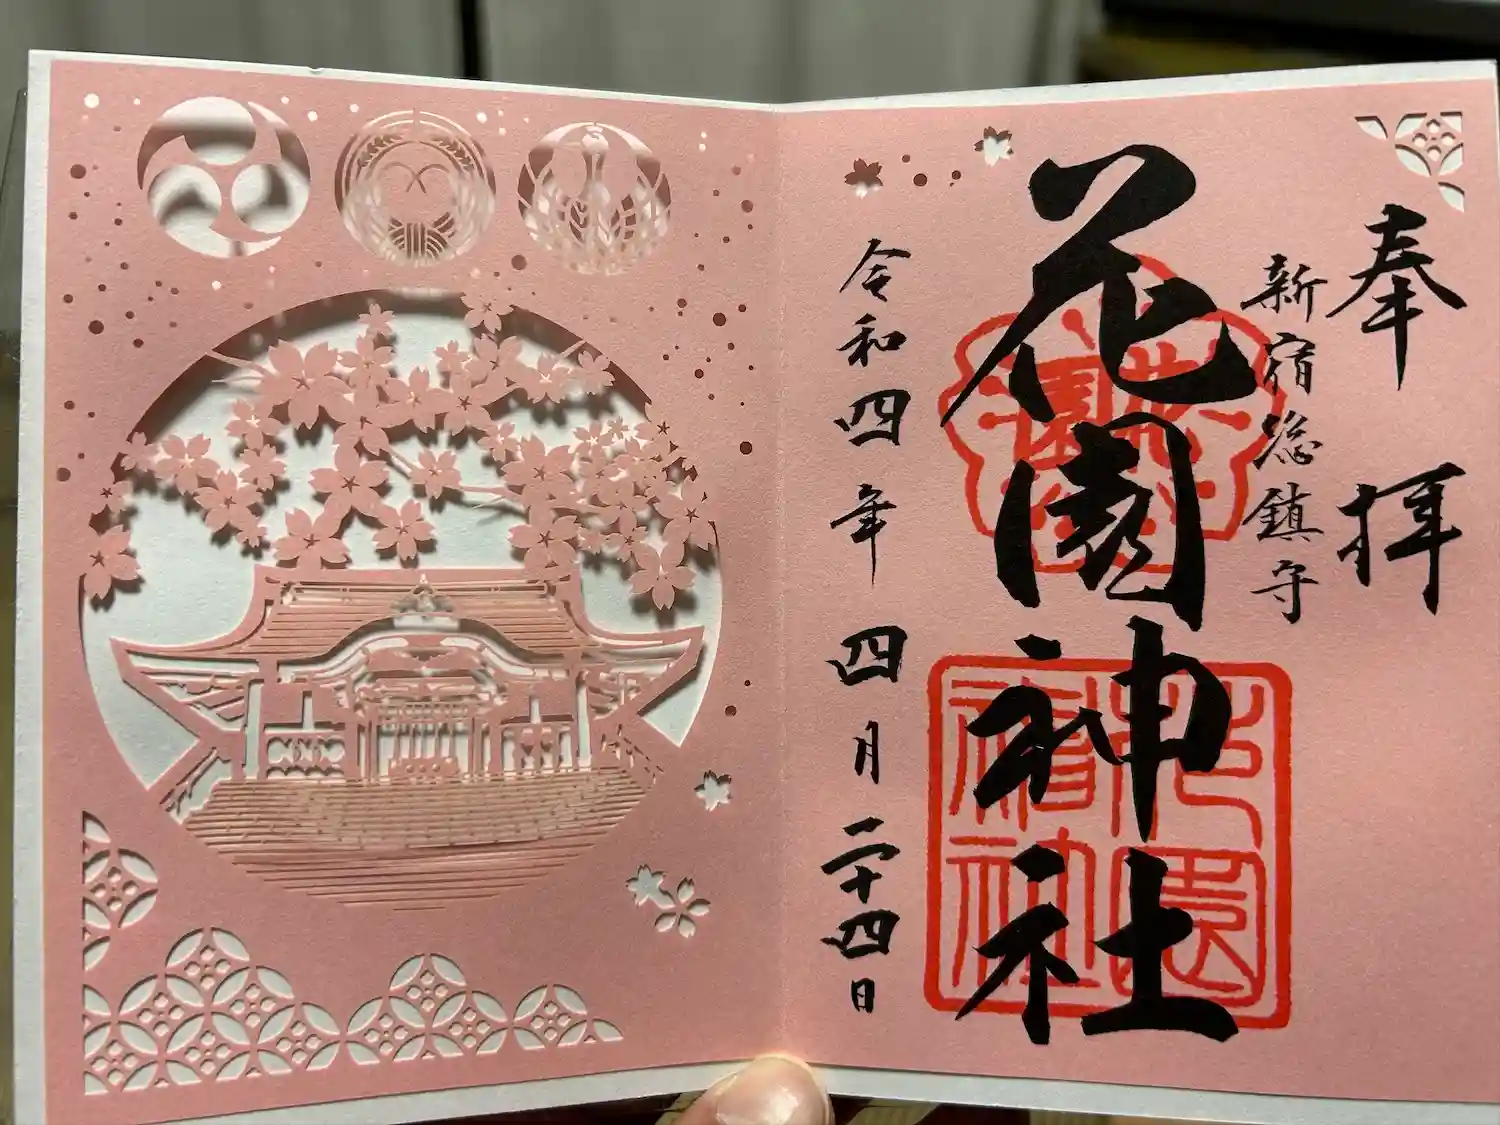 奉拝
新宿総鎮守
花園神社
令和四年四月二十四日
花園神社